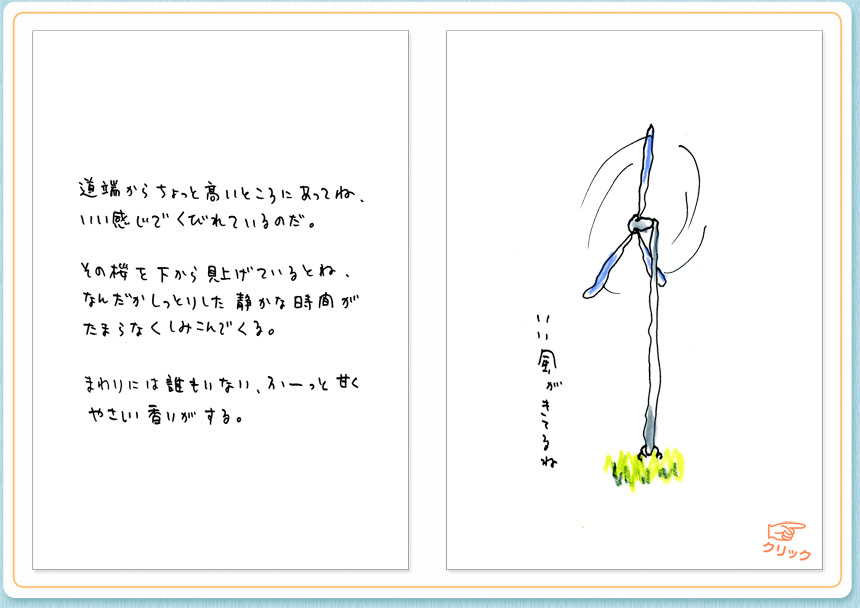 道端からちょっと高いところにあってね、
いい感じでくびれているのだ。
その桜を下から見上げているとね、
なんだかしっとりした静かな時間が
たまらなくしみこんでくる。
まわりには誰もいない、ふーっと甘く
やさしい香りがする。
いい風がきてるね
クリック